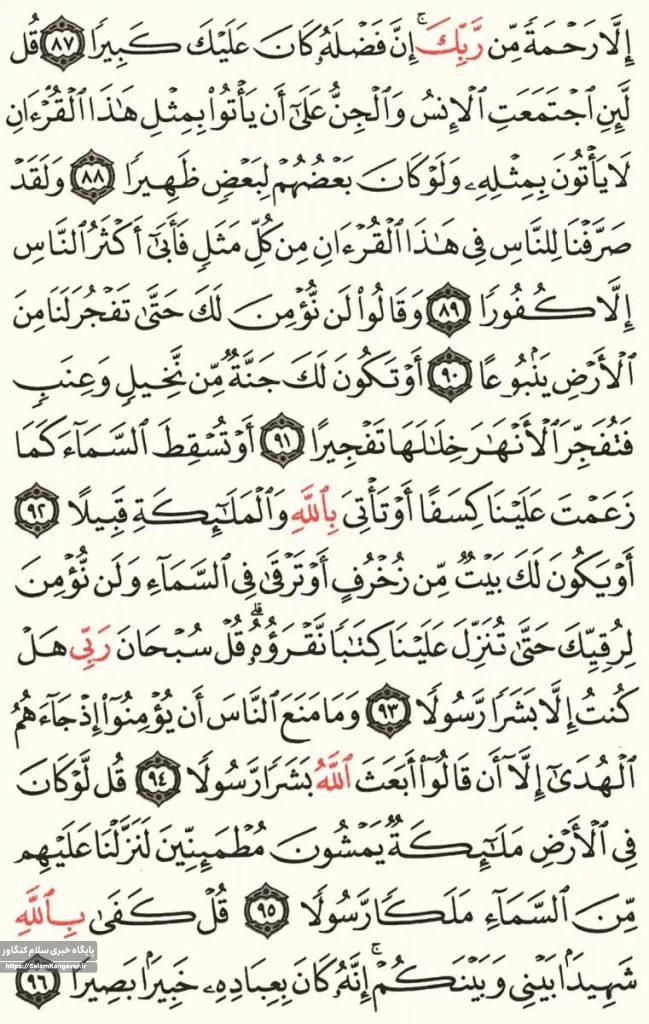 إِلَّا رَحْمَةً مِّن رَّبِّكَ ۚ إِنَّ فَضْلَهُۥ كَانَ عَلَيْكَ كَبِيرًا ٨٧ قُل
لَّئِنِ ٱجْتَمَعَتِ ٱلْإِنسُ وَٱلْجِنُّ عَلَىٰٓ أَن يَأْتُوا۟ بِمِثْلِ هَٰذَا ٱلْقُرْءَانِ
لَا يَأْتُونَ بِمِثْلِهِۦ وَلَوْ كَانَ بَعْضُهُمْ لِبَعْضٍ ظَهِيرًا ٨٨ وَلَقَدْ
صَرَّفْنَا لِلنَّاسِ فِى هَٰذَا ٱلْقُرْءَانِ مِن كُلِّ مَثَلٍ فَأَبَىٰٓ أَكْثَرُ ٱلنَّاسِ
إِلَّا كُفُورًا ٨٩ وَقَالُوا۟ لَن نُّؤْمِنَ لَكَ حَتَّىٰ تَفْجُرَ لَنَا مِنَ
ٱلْأَرْضِ يَنۢبُوعًا ٩٠ أَوْ تَكُونَ لَكَ جَنَّةٌ مِّن نَّخِيلٍ وَعِنَبٍ
فَتُفَجِّرَ ٱلْأَنْهَٰرَ خِلَٰلَهَا تَفْجِيرًا ٩١ أَوْ تُسْقِطَ ٱلسَّمَآءَ كَمَا
زَعَمْتَ عَلَيْنَا كِسَفًا أَوْ تَأْتِىَ بِٱللَّهِ وَٱلْمَلَٰٓئِكَةِ قَبِيلًا ٩٢
أَوْ يَكُونَ لَكَ بَيْتٌ مِّن زُخْرُفٍ أَوْ تَرْقَىٰ فِى ٱلسَّمَآءِ وَلَن نُّؤْمِنَ
لِرُقِيِّكَ حَتَّىٰ تُنَزِّلَ عَلَيْنَا كِتَٰبًا نَّقْرَؤُهُۥ ۗ قُلْ سُبْحَانَ رَبِّى هَلْ
كُنتُ إِلَّا بَشَرًا رَّسُولًا ٩٣ وَمَا مَنَعَ ٱلنَّاسَ أَن يُؤْمِنُوٓا۟ إِذْ جَآءَهُمُ
ٱلْهُدَىٰٓ إِلَّآ أَن قَالُوٓا۟ أَبَعَثَ ٱللَّهُ بَشَرًا رَّسُولًا ٩٤ قُل لَّوْ كَانَ
فِى ٱلْأَرْضِ مَلَٰٓئِكَةٌ يَمْشُونَ مُطْمَئِنِّينَ لَنَزَّلْنَا عَلَيْهِم
مِّنَ ٱلسَّمَآءِ مَلَكًا رَّسُولًا ٩٥ قُلْ كَفَىٰ بِٱللَّهِ
شَهِيدًۢا بَيْنِى وَبَيْنَكُمْ ۚ إِنَّهُۥ كَانَ بِعِبَادِهِۦ خَبِيرًۢا بَصِيرًا ٩٦
پایگاه خبری سلام کنگاور
https://SalamKangavar.ir